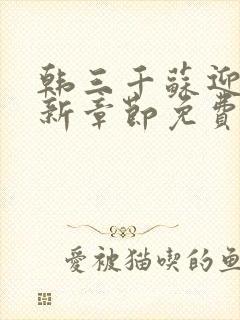 韩三千蘇迎
新章節免費
愛被猫喫的魚